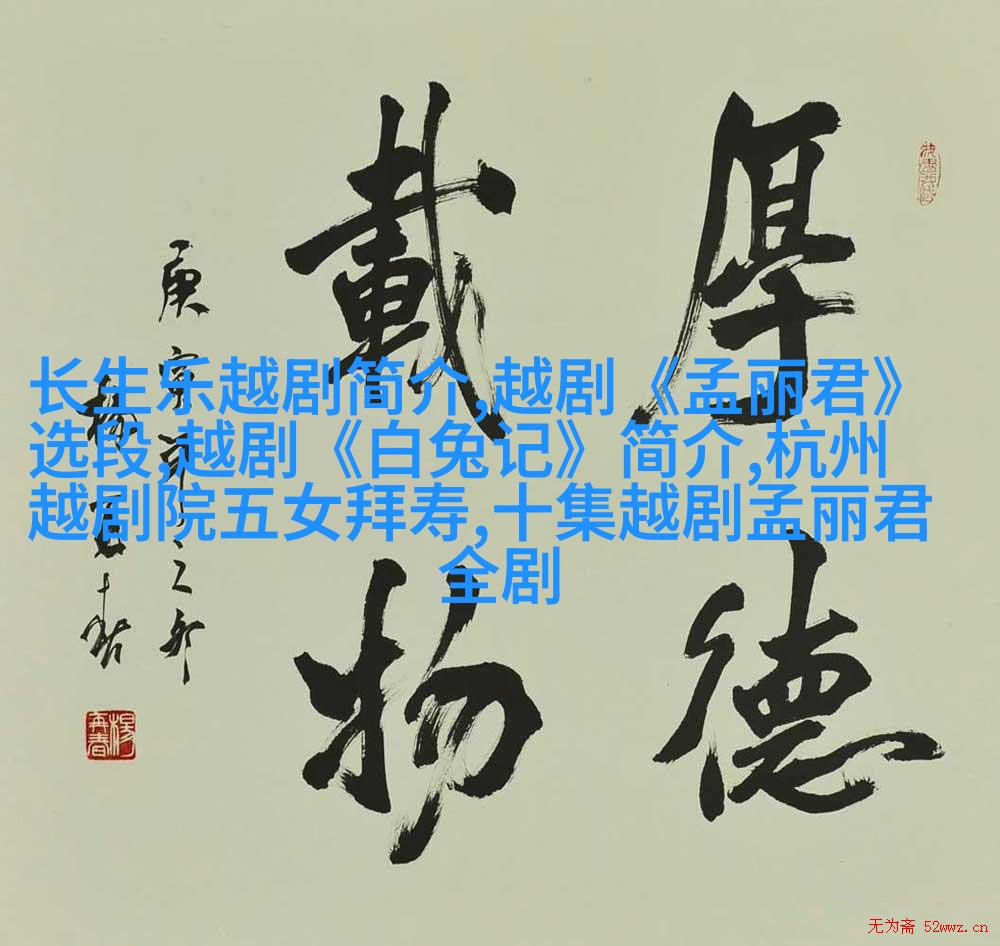 厚德
載物
庚子年之春
楊再春
楊再春
长生乐越剧简介,越剧《孟丽君》
选段,越剧《白兔记》简介,杭州
越剧院五女拜寿,十集越剧孟丽君
全剧
无为斋 52wwz.cn